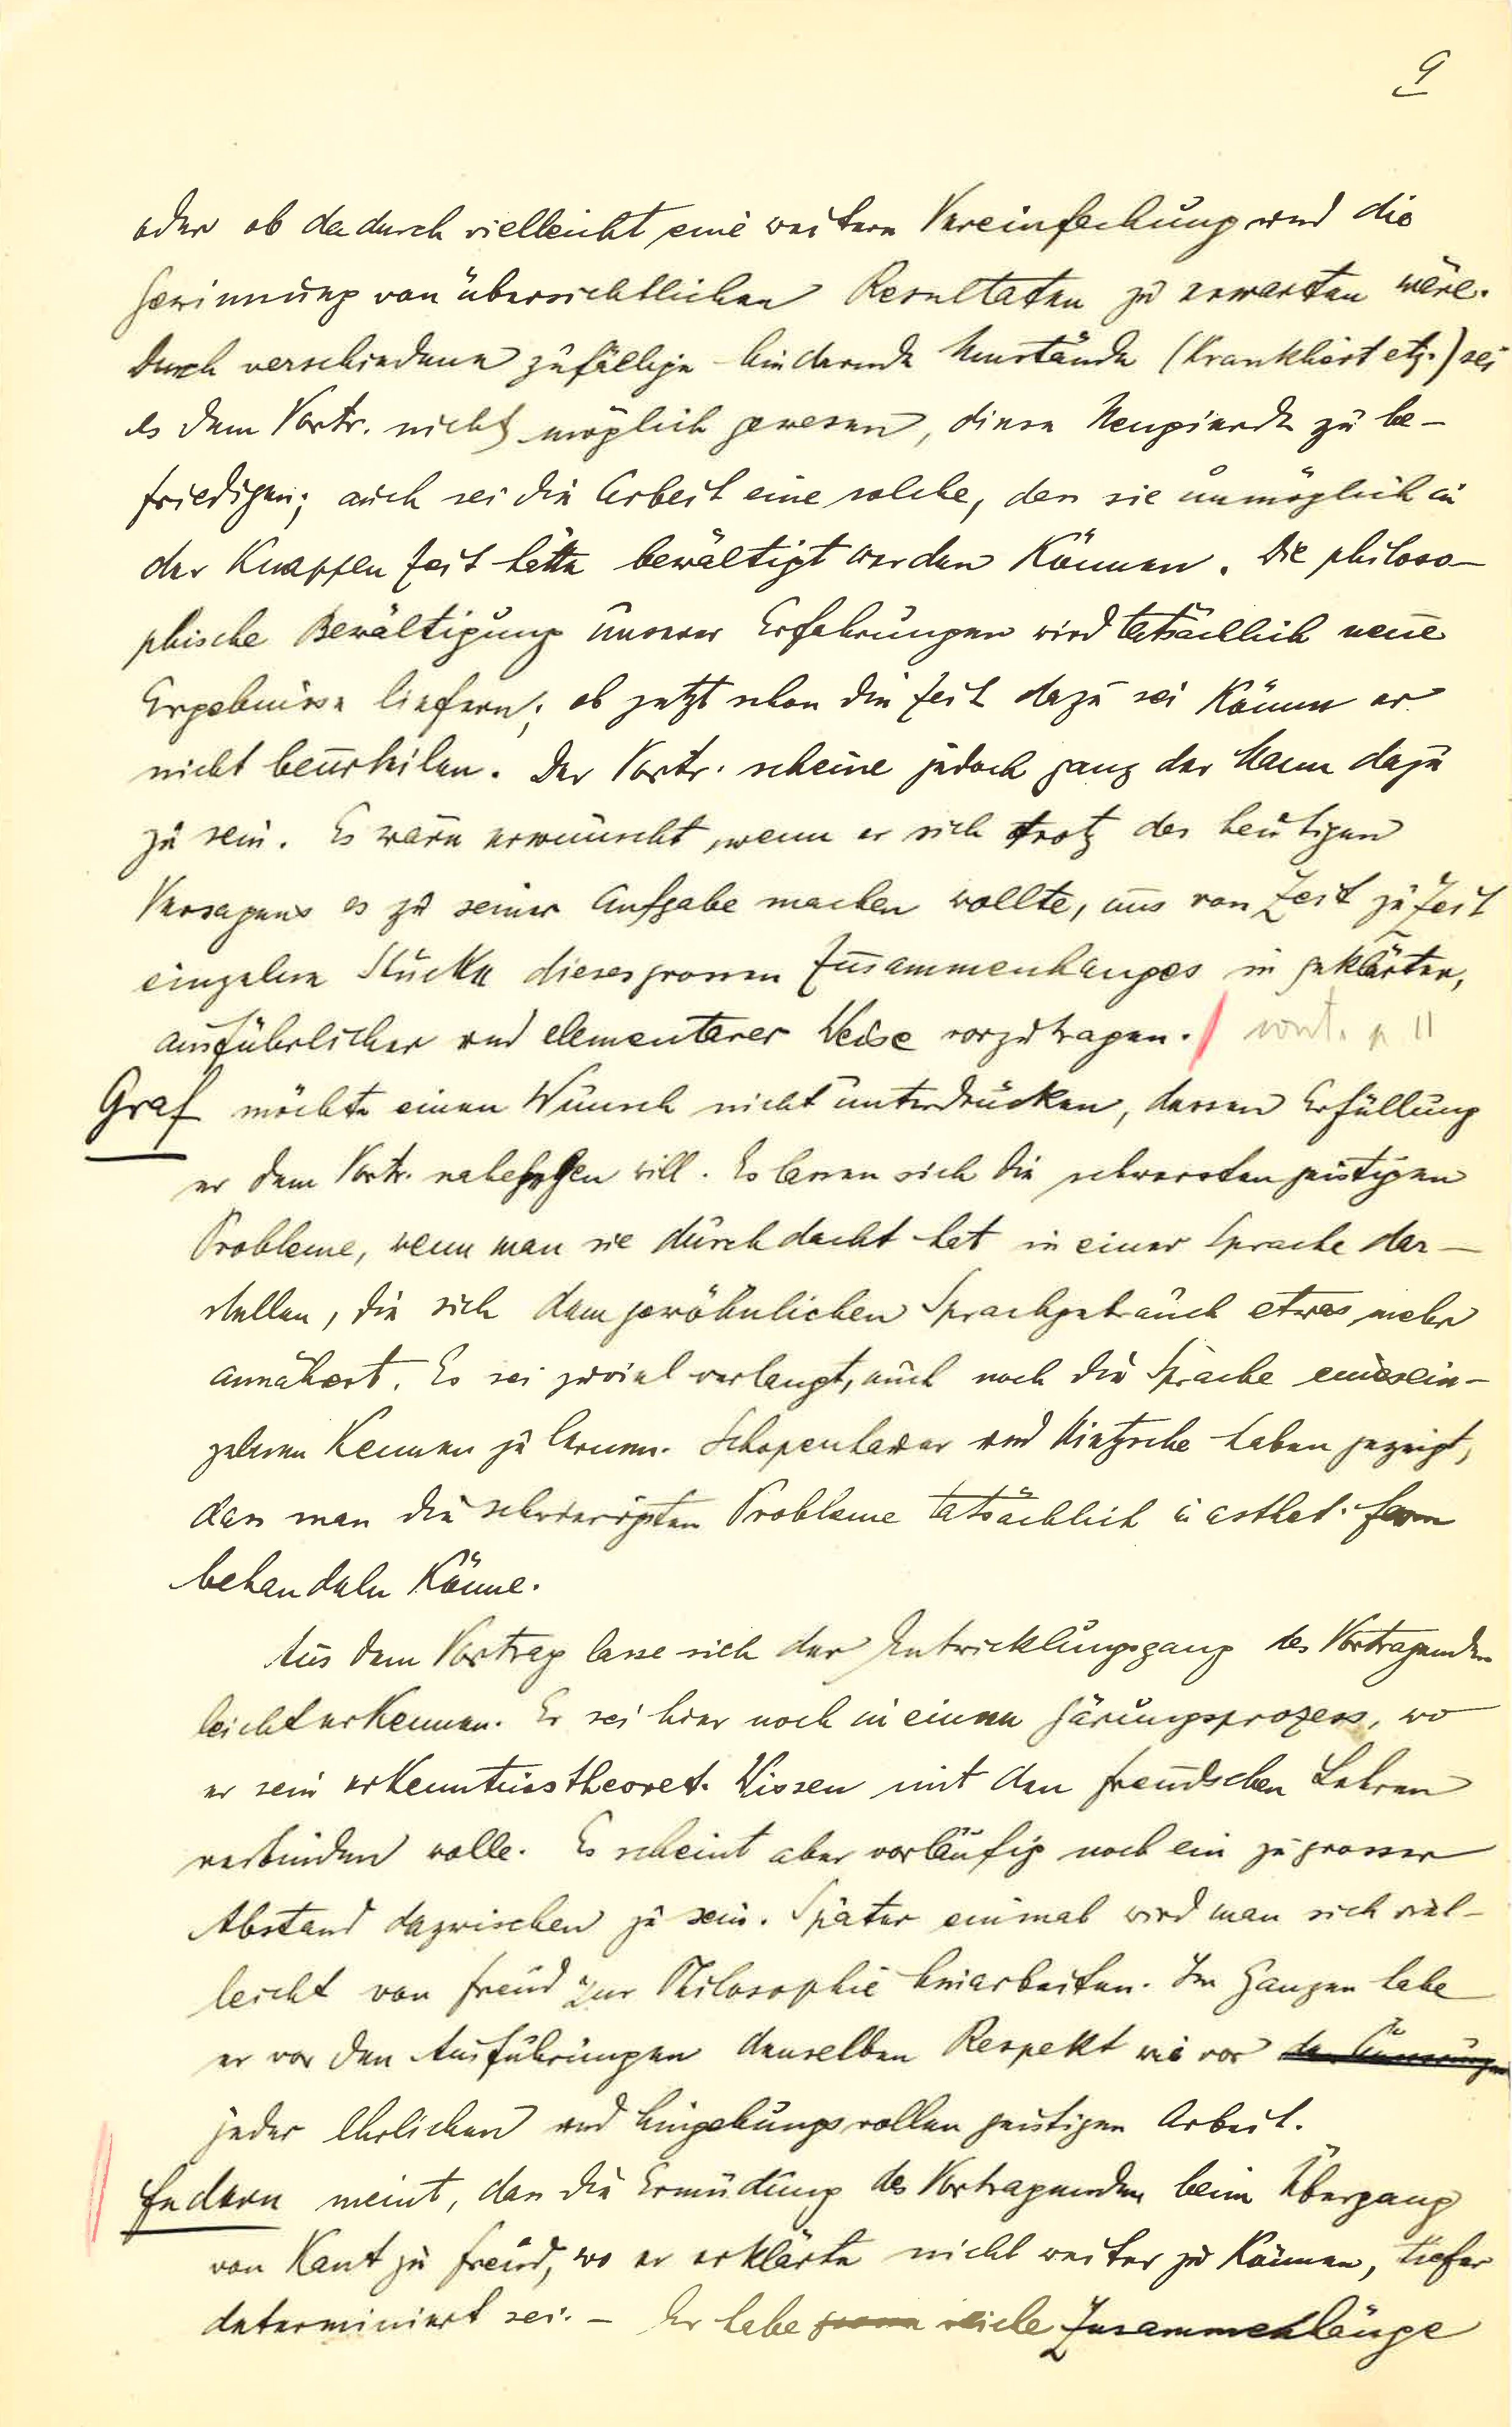 9
oder ob dadurch vielleicht eine weitere Vereinfachung und die
Gewinnung von übersichtlichen Resultaten zu erwarten wäre.
Durch verschiedene zufällige hindernde Umstände (Krankheit etz.) sei
es dem Vortr. nicht möglich gewesen, diese Neugierde zu be-
friedigen; auch sei die Arbeit eine solche, dass sie unmöglich in
der Knappen Zeit hätte bewältigt werden Können. Die philoso-
phische Bewältigung unserer Erfahrungen wird tatsächlich neue
Ergebnisse liefern; ob jetzt schon die Zeit dazu sei Könne er
nicht beurteilen. Der Vortr. scheine jedoch ganz der Mann dazu
zu sein. Es wäre erwünscht, wenn er sich trotz des heutigen
Versagens es zu seiner Aufgabe machen wollte, uns von Zeit zu Zeit
einzelne Stücke dieses grossen Zusammenhanges in geklärter,
ausführlicher und elementarer Weise vorzutragen. / p 11
Graf möchte einen Wunsch nicht unterdrücken, dessen Erfüllung
er dem Vortr. nahelegen will. Es lassen sich die schwersten geistigen
Probleme, wenn man sie durchdacht hat in einer Sprache dar-
stellen, die sich dem gewöhnlichen Sprachgebrauch etwas mehr
annähert. Es sei zuviel verlangt, auch noch die Sprache eines ein-
zelnen Kennen zu lernen. Schopenhauer und Nietzsche haben gezeigt,
dass man die schwierigsten Probleme tatsächlich in ästhet. Form
behandeln Könne.
Aus dem Vortrag lasse sich der Entwicklungsgang des Vortragenden
leicht erkennen. Er sei hier noch in einem Gärungsprozess, wo
er sein erkenntnistheoret. Wissen mit den Freudschen Lehren
verbinden wolle. Es scheint aber vorläufig noch ein zu grosser
Abstand dazwischen zu sein. Später einmal wird man sich viel-
leicht von Freud zur Philosophie hinarbeiten. Im Ganzen habe
er vor den Ausführungen denselben Respekt wie vor
jeder ehrlichen und hingebungsvollen geistigen Arbeit.
Federn meint, dass die Ermüdung des Vortragenden beim Übergang
von Kant zu Freud, wo er erklärte nicht weiter zu Können, tiefer
determiniert sei. – Er habe viele Zusammenhänge